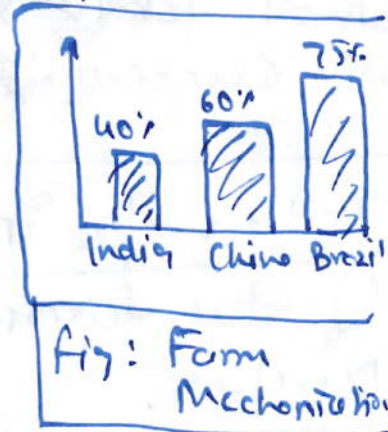 75%
60%
40%
India China Brazil
fig: Farm
Mechanization